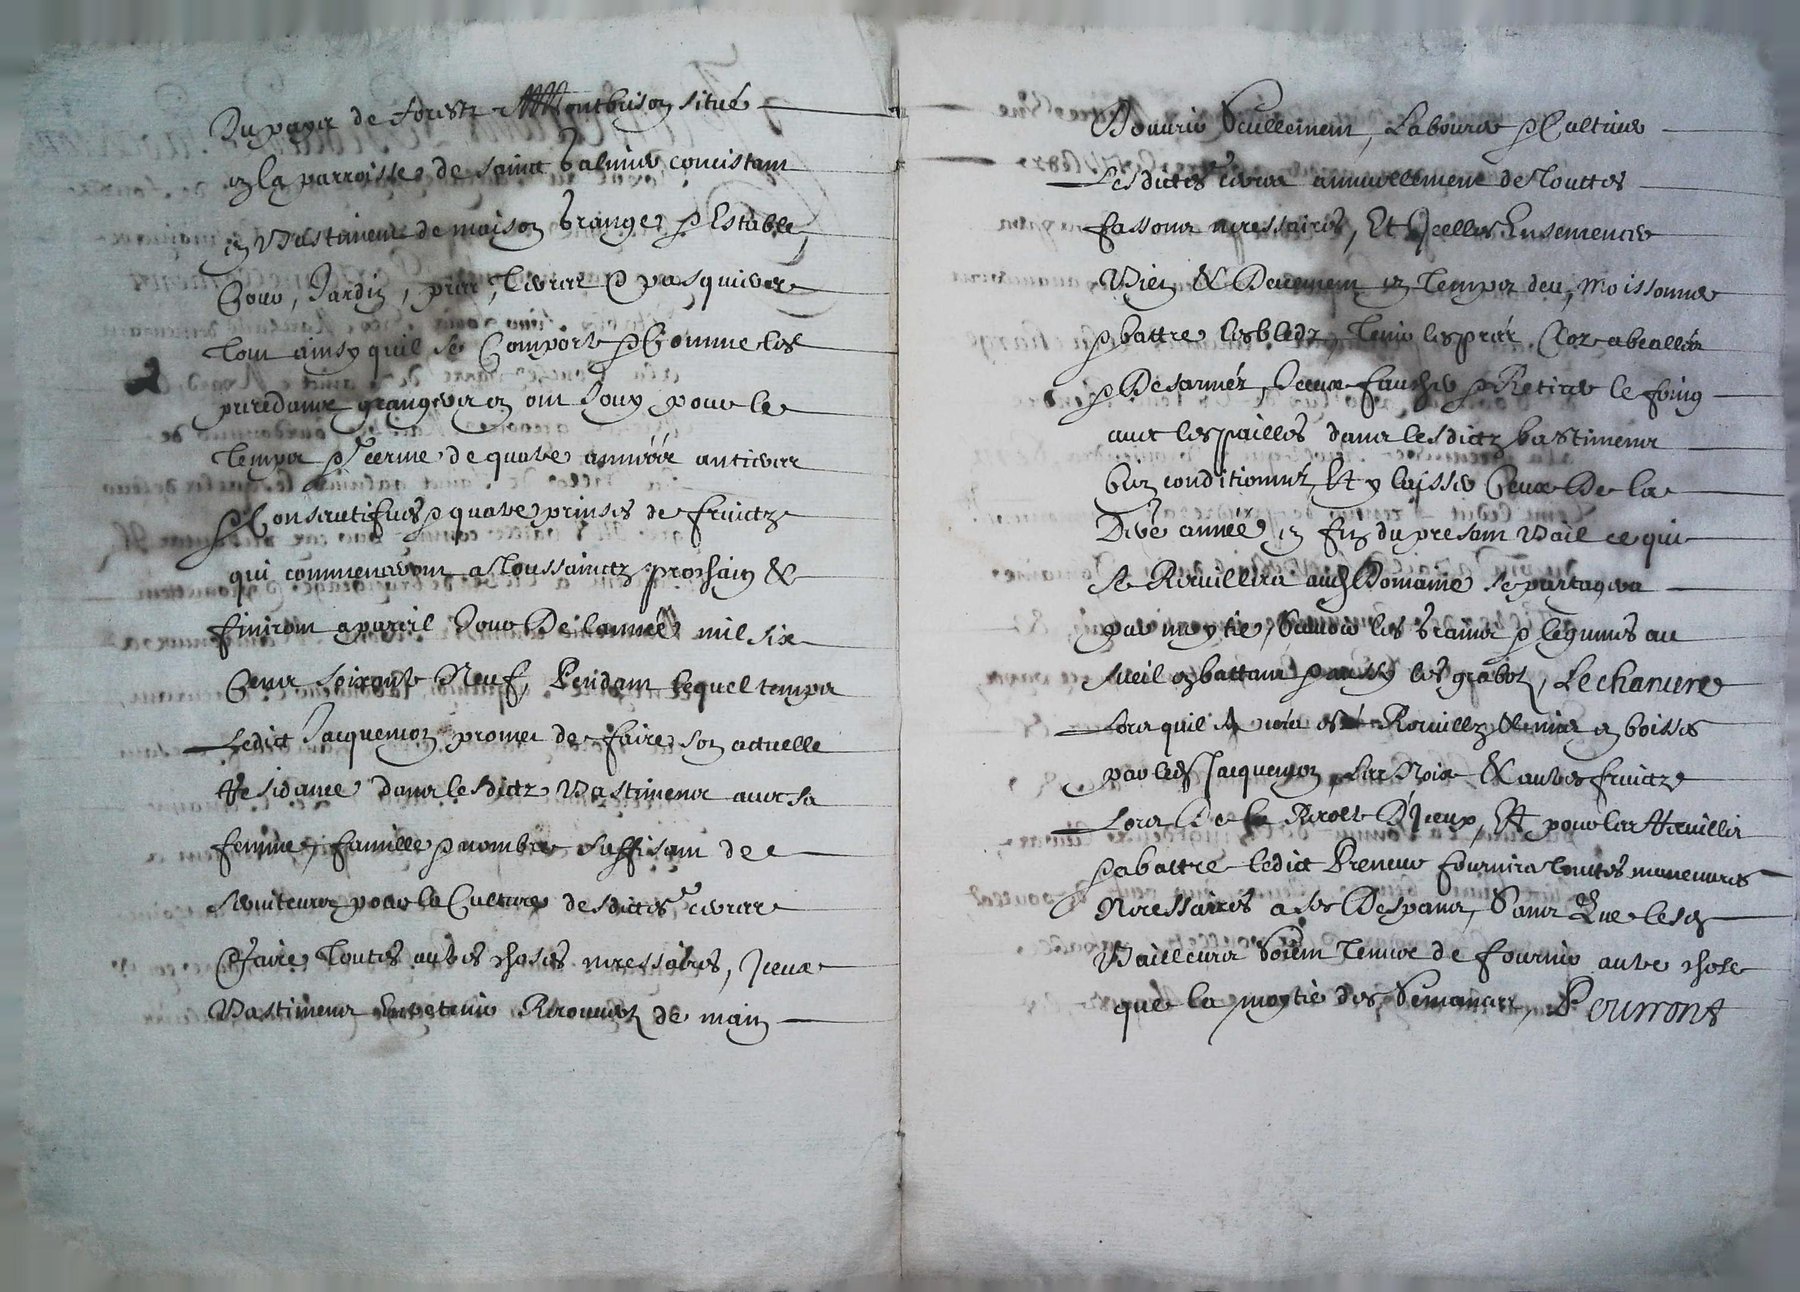 Du pays de forestz Montbrison situé
en la parroisse de saint Galmier concistant
en bastiment de maison grange & Estable
Cour, Jardin, prés, terres & pasquiers
tout ainsy quil se Comporte & Comme les
precedans grangers en ont Jouy pour le
temps & terme de quatre années antieres
& Consecutifves & quatre prinses de fruictz
qui commenceront a Toussainctz prochain &
finiront a pareil Jour De lannée mil six
Cens soixante Neuf, Pendant lequel temps
Ledict Jacquemon promet de faire son actuelle
Residance dans lesdictz bastimens avec sa
femme, famille & nombre suffisant de
serviteurs pour la Culture desdictes terres
& faire toutes autres choses necessaires, Iceux
bastimens Entretenir Recouvertz de main
seullement, Labourer & Cultiver
Lesdictes terres annuellement de touttes
fassons necessaires, Et Icelles Ensemencer
bien & Deuement en temps deu, Moissonner
& battre les bledz, tenir les prés Clos abealler
& Desarmer, Iceux faucher & Retirer le foing
avec les pailles dans lesdictz bastimens
bien conditionnez Et y laisser Ceux De la
Dre année en fin du present bail ce qui
se Recuillira audt Domaine se partagera
par moytié, scavoir les grains & legumes au
sueil en battant & aussy les grabotz, Le chanvre
Lors quil sera Recuilly & mis en boisses
par ledt Jacquemon, Les Noix & autres fruictz
Lors De la Recolte D'Iceux, Et pour les Recuillir
& abattre ledict Preneur fournira toutes maneuvres
Necessaires a ses Despans, Sans Que lesdt
Bailleurs soient tenus de fournir autre chose
que la moytié des semances, Pourront